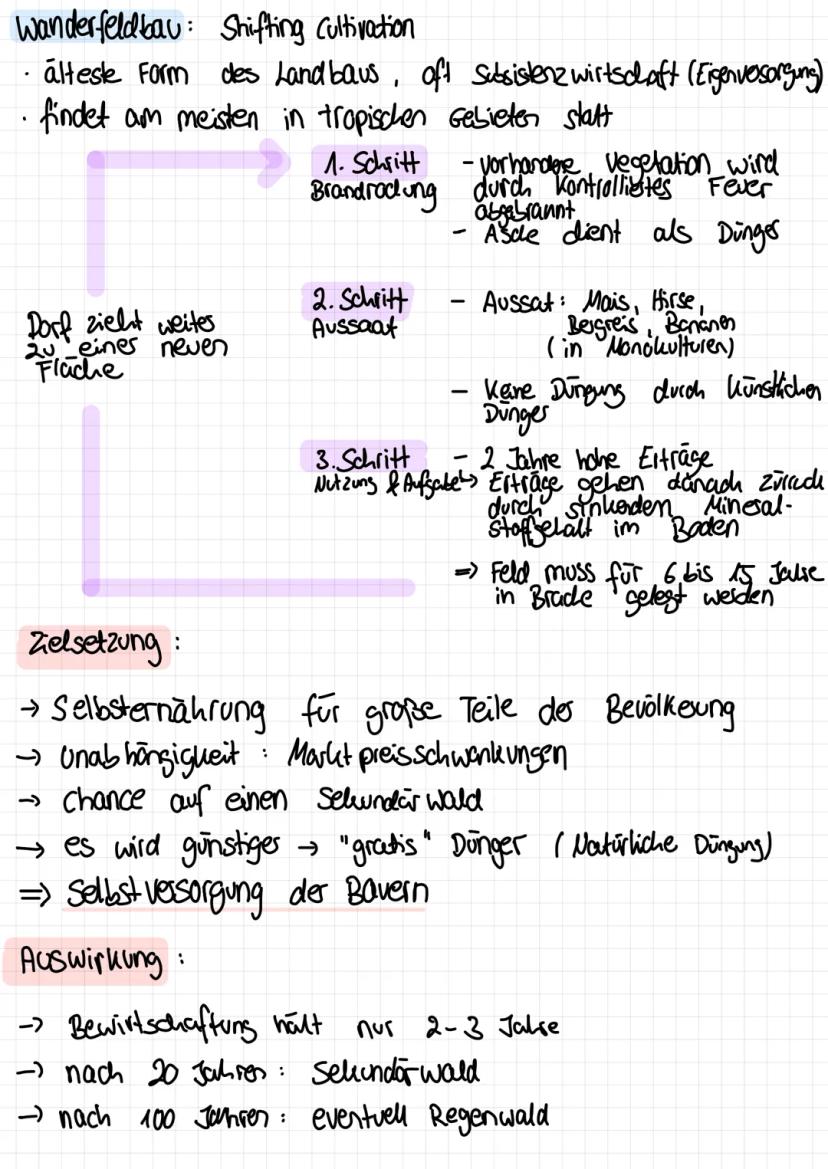 Wanderfeldbau: Shifting Cultivation
· älteste Form des Landbaus, oft Subsistenzwirtschaft (Eigenversorgung)
· findet am meisten in tropischen Gebieten statt
1. Schritt
Brandrodung
- vorhandene Vegetation wird
durch kontrolliertes Feuer
abgebrannt
- Asche dient als Dünger
2. Schritt
Aussaat
- Aussat: Mais, Hirse,
Bergreis, Bananen
(in Monokulturen)
- Keine Düngung durch künstlichen
Dünger
Dorf zieht weiter
zu einer neuen
Fläche
3. Schritt
Nutzung & Aufgabe
- 2 Jahre hohe Erträge
↳ Erträge gehen danach zurück
durch sinkenden Mineral-
stoffgehalt im Boden
⇒ Feld muss für 6 bis 15 Jahre
in Brache gelegt werden
Zielsetzung:
→ Selbsternährung für große Teile der Bevölkerung
→ Unabhängigkeit: Marktpreisschwankungen
→ Chance auf einen Sekundärwald
→ es wird günstiger → "gratis" Dünger (Natürliche Düngung)
⇒ Selbstversorgung der Bauern
Auswirkung:
→ Bewirtschaftung hält nur 2-3 Jahre
→ nach 20 Jahren: Sekundärwald
→ nach 100 Jahren: eventuell Regenwald